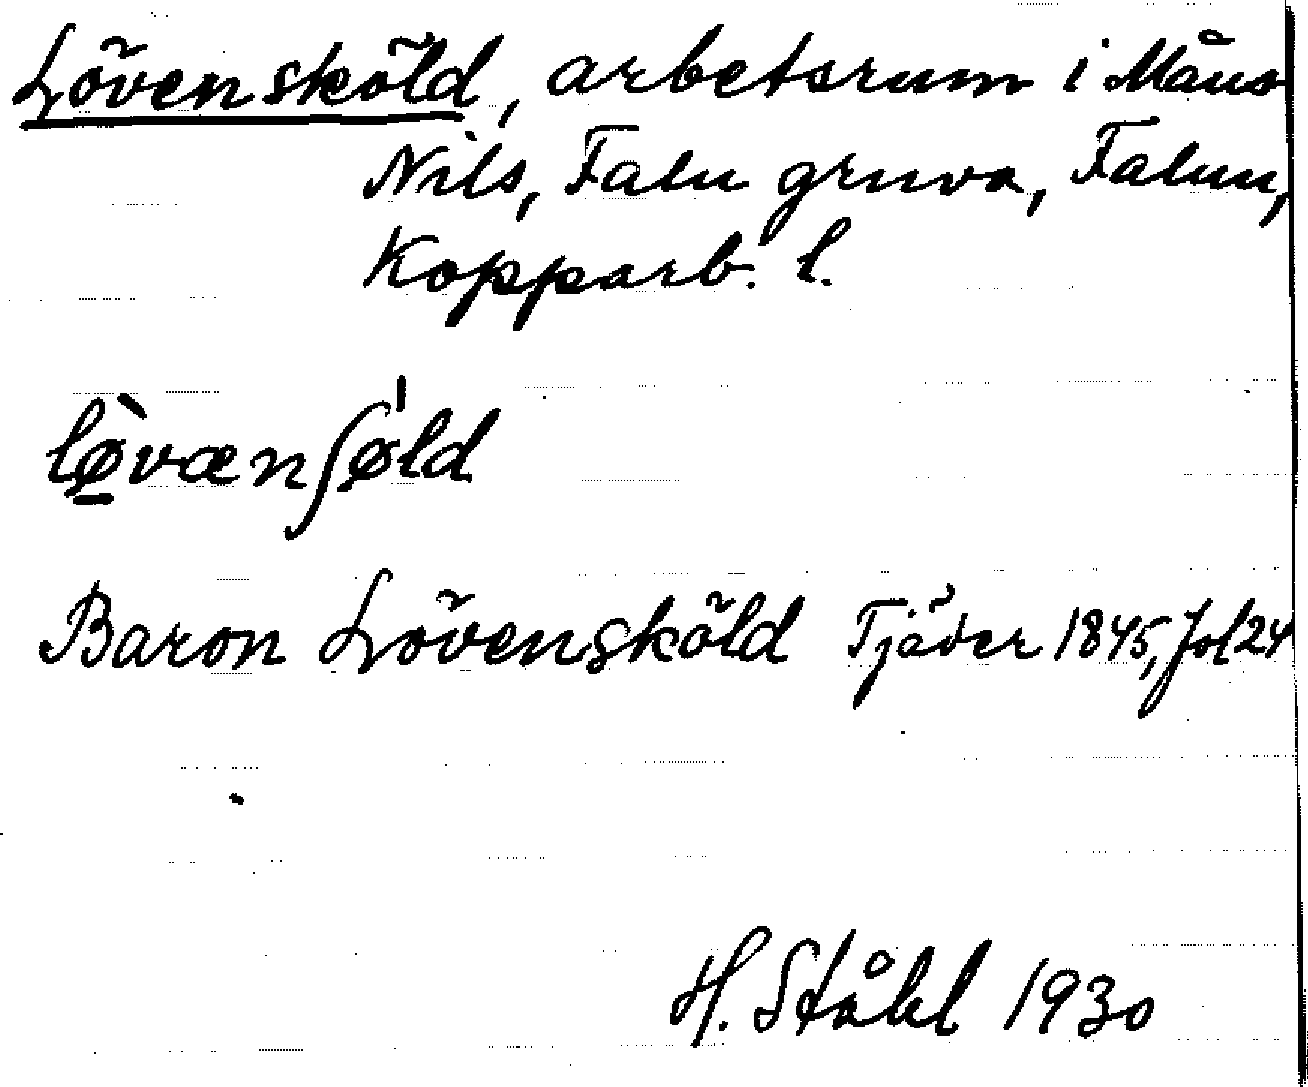 Lövensköld, arbetsrum i Måns
Nils, Falu gruva, Falun,
Kopparb. l.
lø̱̀vænʃø'ld
Baron Lövensköld Tjäder 1845, fol 24
H. Ståhl 1930